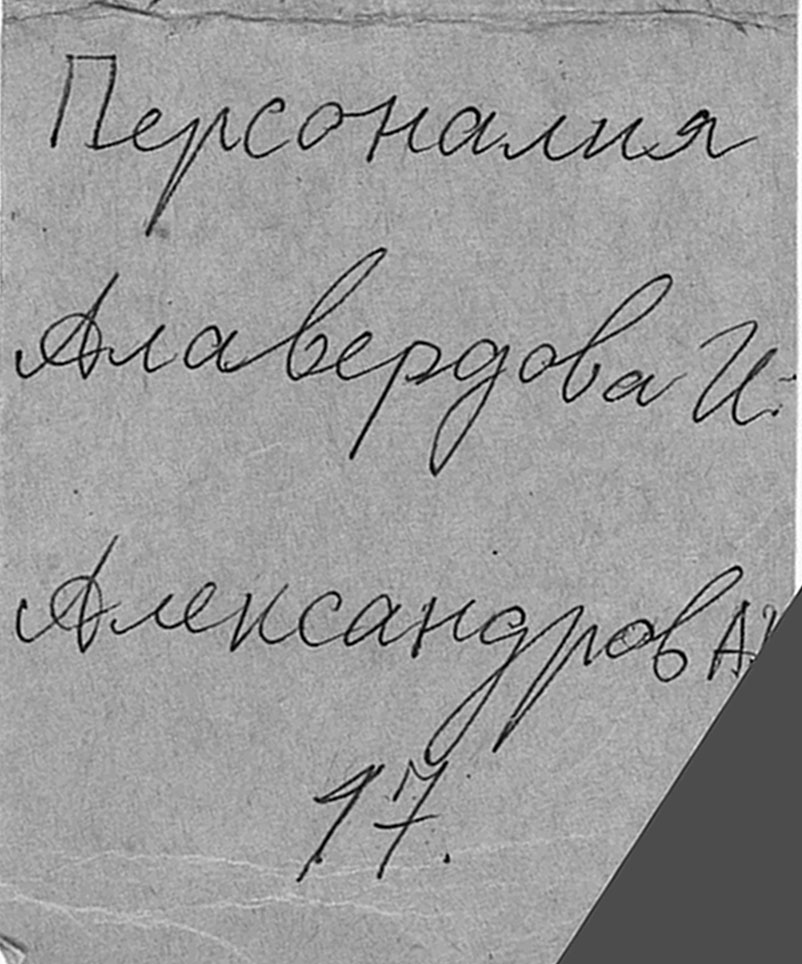 Персоналия
Алавердова И.
Александров А.
17.